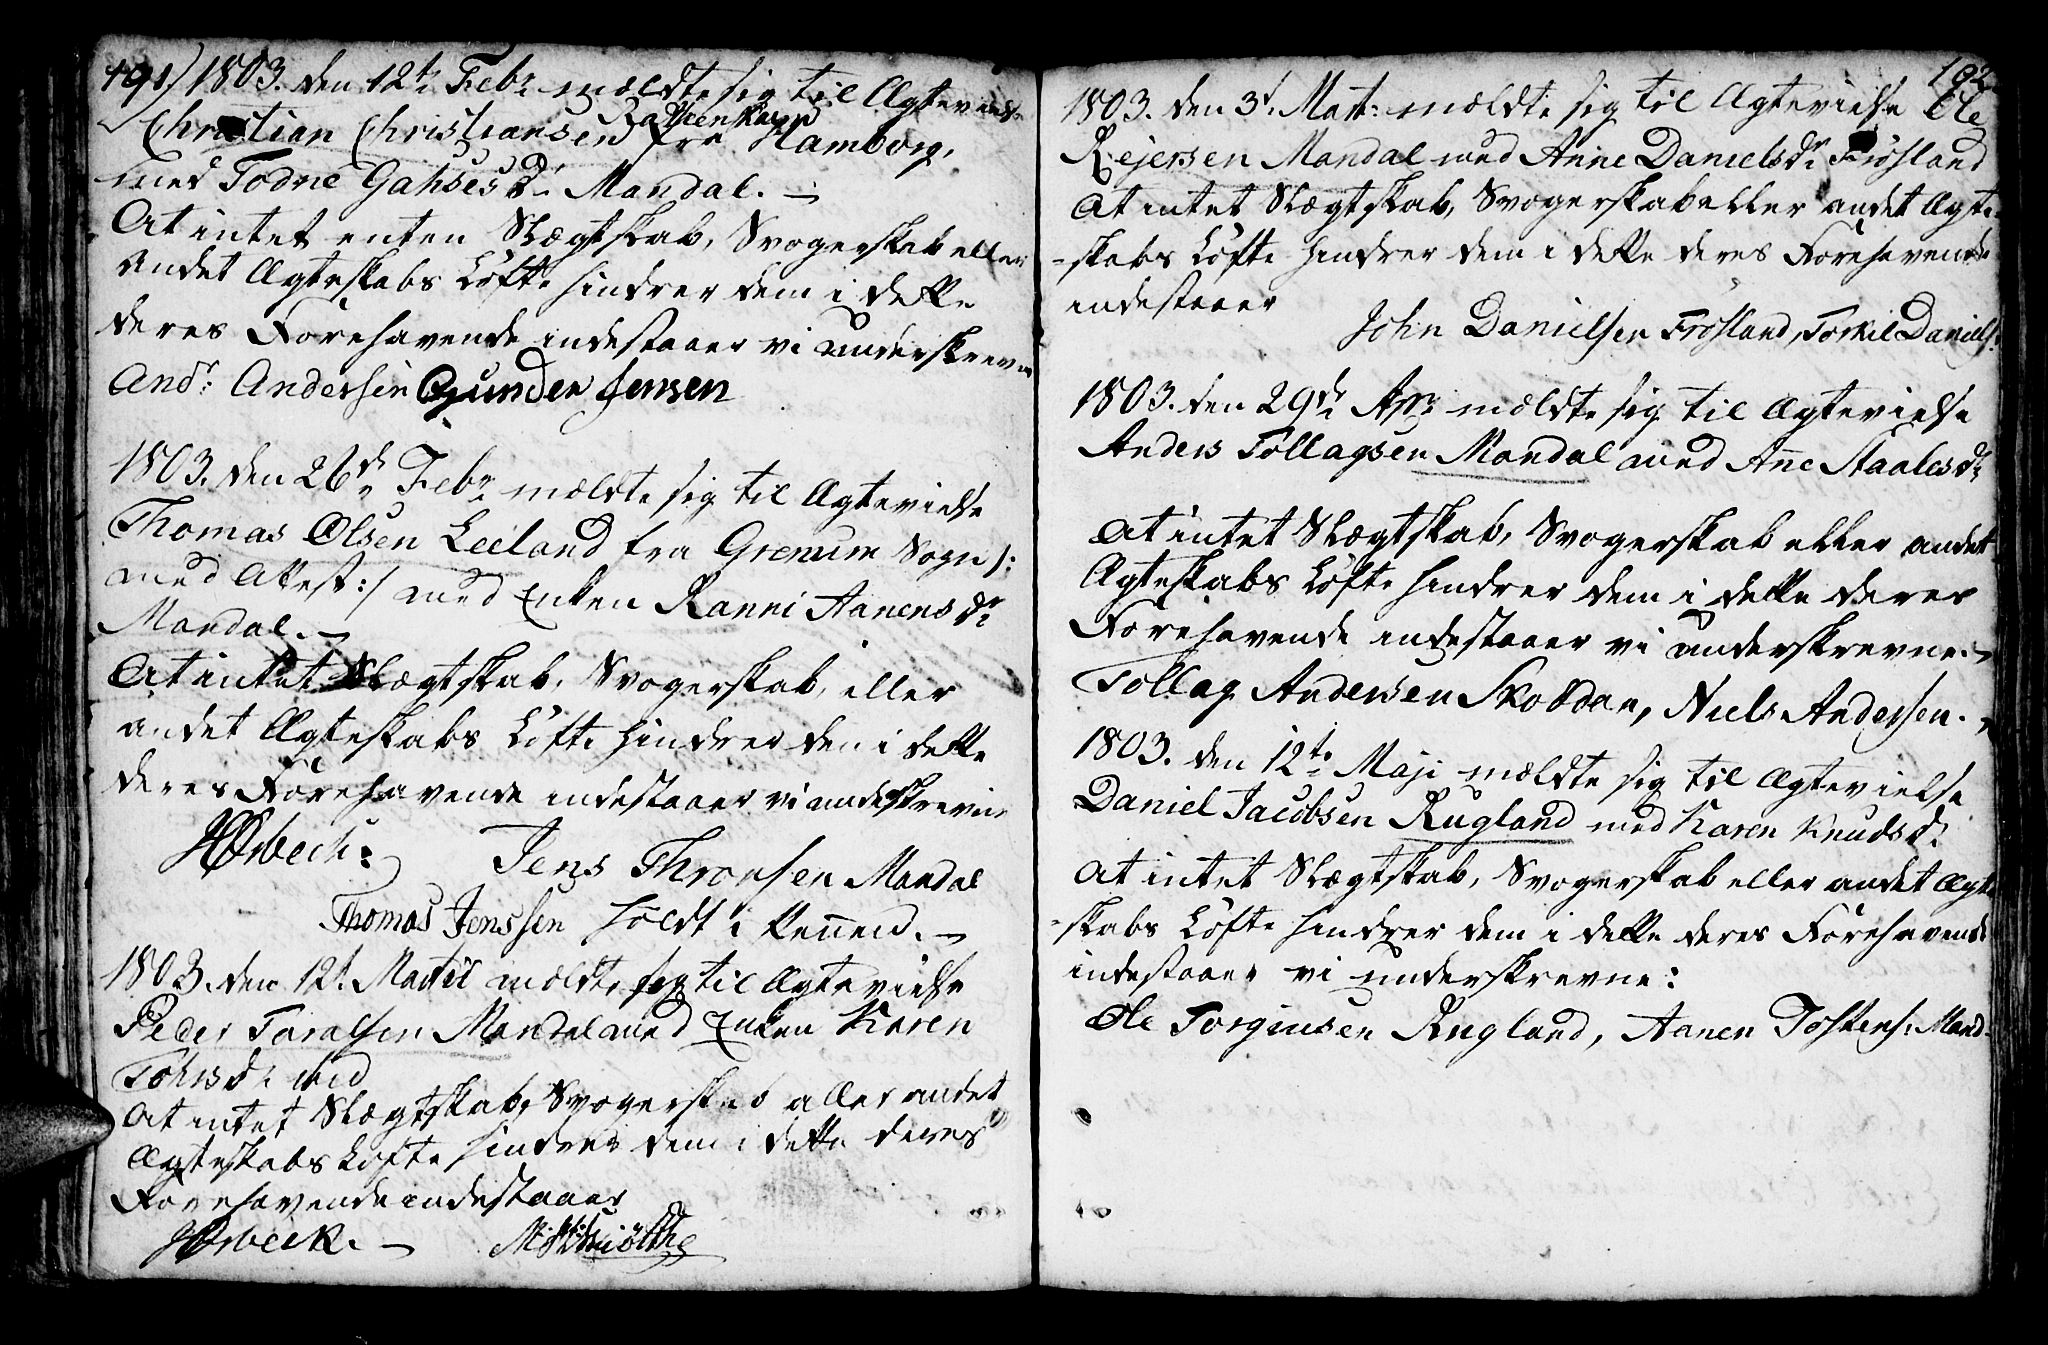 191) 1803. den 12te Febr mældte sig til Ægtevielse
Rathienskamp
Christian Christiansen fra Hamborg,
med Todne Gahsesdr. Mandal. —
At intet enten Slægtskab, Svogerskab eller
andet Ægteskabs Løfte hindrer dem i dette
deres Forehavende indestaaer vi underskrevne
Andr: Andersen Gunder Jensen
1803. den 26de Febr mældte sig til Ægtevielse
Thomas Olsen Leeland fra Grenum Sogn /:
med Attest :/ med Enken Ranni Aanensdr
Mandal. —
At intet Slægtskab, Svogerskab, eller
andet Ægteskabs Løfte hindrer dem i dette
deres Forehavende indestaaer vi underskrevne
Jens Thronsen Mandal
Thomas Jenssen holdt i Pennen. —
1803. den 12t Martii mældte sig til Ægtevielse
Peder Taralsen Mandal med Enken Karen
Tohrsdr ibid
At intet Slægtskab, Svogerskab eller andet
Ægteskabs Løfte hindrer dem i dette deres
Forehavende indestaaer
192
1803. den 3d. Mart: mældte sig til Ægtevielse Ole
Rejersen Mandal med Anne Danielsdr Frøsland
At intet Slægtskab, Svogerskab eller andet Ægte-
-skabs Løfte hindrer dem i dette deres Forehavende
indestaaer
John Danielsen Frøsland, Torkil Daniels:
1803. den 29de Apr mældte sig til Ægtevielse
Anders Tollagsen Mandal med Ane Staalesdr
At intet Slægtskab, Svogerskab eller andet
Ægteskabs Løfte hindrer dem i dette deres
Forehavende indestaaer vi underskrevne. —
Tollag Andersen Skoddan, Niels Andersen. —
1803. den 12te Maji mældte sig til Ægtevielse
Daniel Jacobsen Rugland med Karen Knudsdr
At intet Slægtskab, Svogerskab eller andet Ægte
-skabs Løfte hindrer dem i dette deres Forehavende
indestaaer vi underskrevne:
Ole Torgiusen Rugland, Aanen Tostens: Mand.